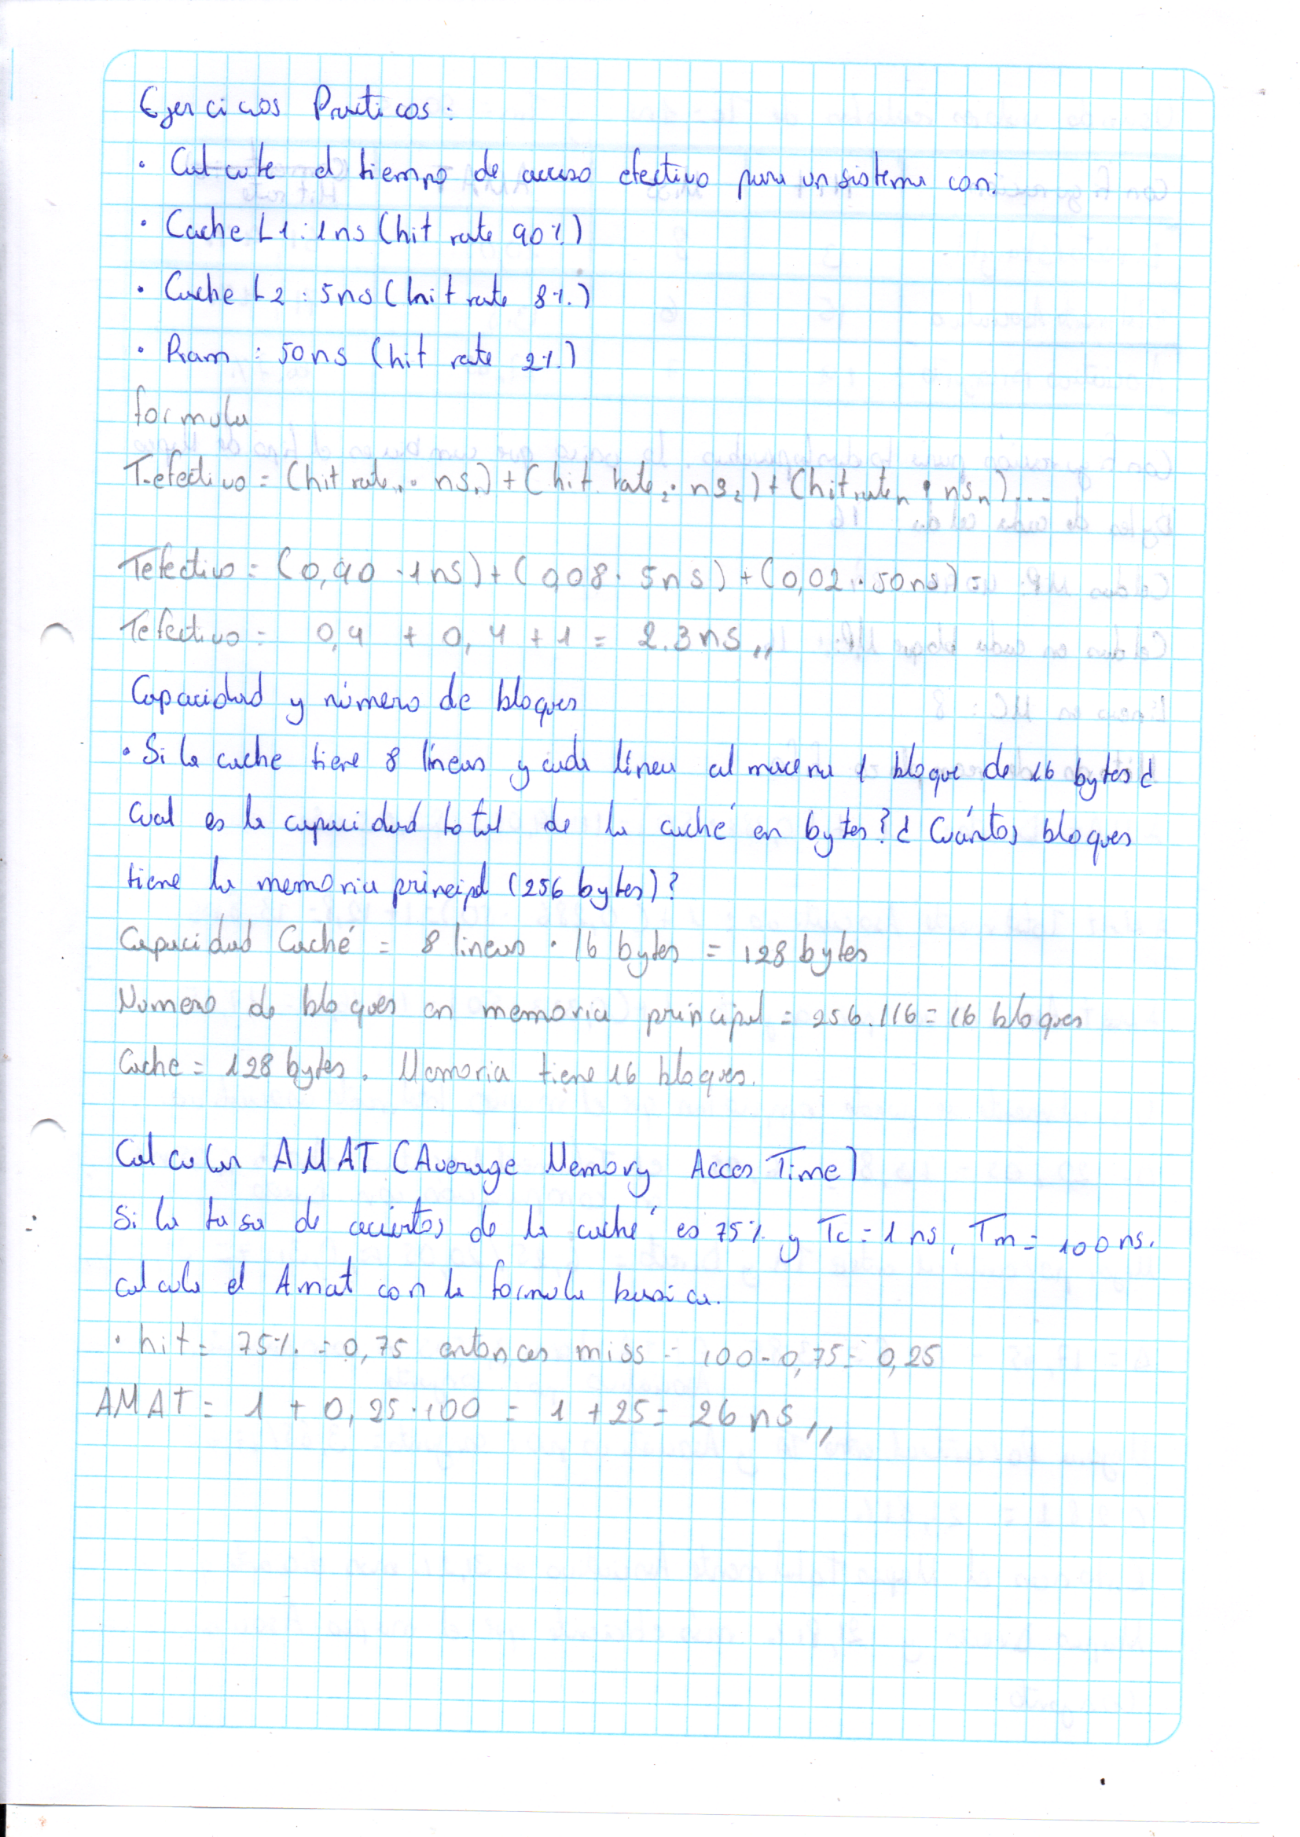 Ejercicios Practicos:
· Calcule el tiempo de acceso efectivo para un sistema con:
· Cache L1: 1ns (hit rate 90%)
· Cache L2: 5ns (hit rate 8%)
· Ram: 50ns (hit rate 2%)
formula
T.efectivo = (hit rate₁ · ns₁) + (hit rate₂ · ns₂) + (hit rateₙ · nsₙ)...
Tefectivo = (0,90 · 1ns) + (0,08 · 5ns) + (0,02 · 50ns) =
Tefectivo = 0,9 + 0,4 + 1 = 2.3ns,,
Capacidad y número de bloques
· Si la cache tiene 8 líneas y cada línea almacena 1 bloque de 16 bytes ¿
Cual es la capacidad total de la caché en bytes? ¿Cuántos bloques
tiene la memoria principal (256 bytes)?
Capacidad Caché = 8 lineas · 16 bytes = 128 bytes
Numero de bloques en memoria principal = 256.116 = 16 bloques
Cache = 128 bytes. Memoria tiene 16 bloques.
Calcular AMAT (Average Memory Acces Time)
Si la tasa de aciertos de la caché es 75% y Tc = 1 ns, Tm = 100 ns.
calcule el Amat con la formula basica.
· hit = 75% = 0,75 entonces miss = 100 - 0,75 = 0,25
AMAT = 1 + 0,25 · 100 = 1 + 25 = 26 ns,,